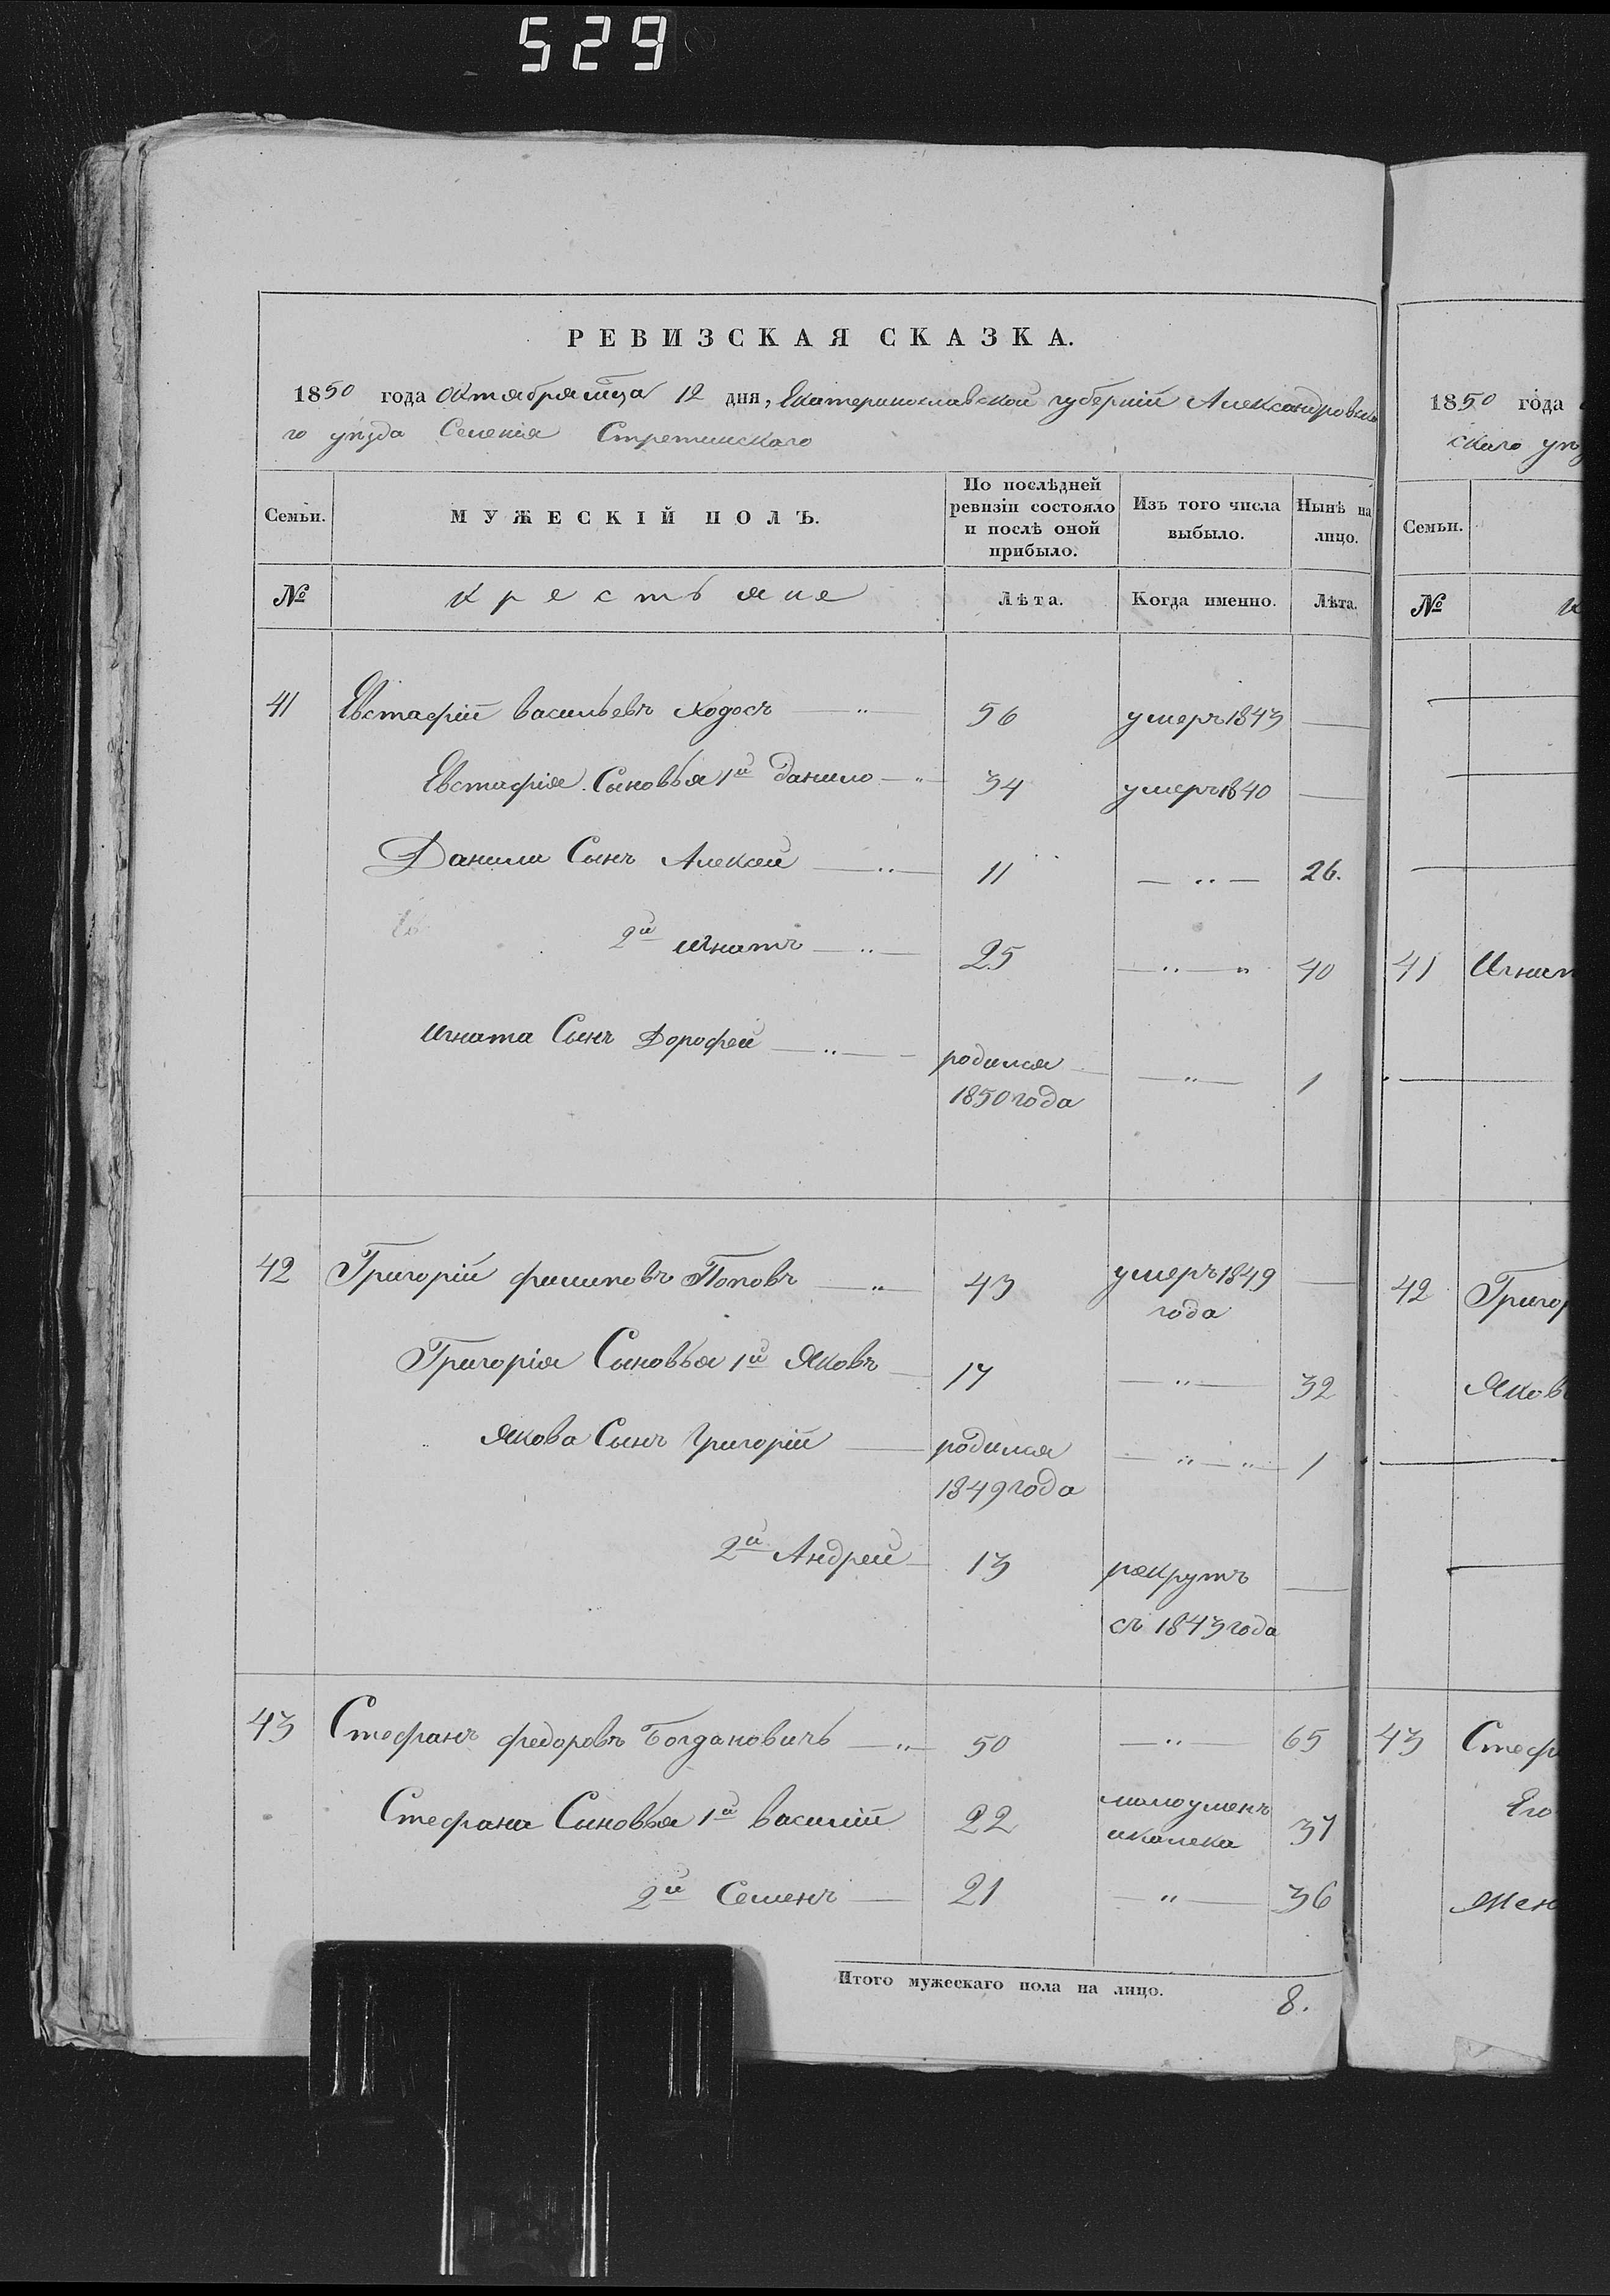 529
РЕВИЗСКАЯ СКАЗКА.
1850 года октября мца 12 дня, Екатеринославской губерній Александровска
го уѣзда Селенія Стретинскаго
Семьи. МУЖЕСКІЙ ПОЛЪ. По послѣдней ревизіи состояло и послѣ оной прибыло. Изъ того числа выбыло. Нынѣ на лицо.
№ крестьяне Лѣта. Когда именно. Лѣта.
41 Евстафій васильевъ Ходосъ — " 56 умеръ 1843 —
Евстафія Сыновья 1й данило — " — 34 умеръ 1840 —
Данили Сынъ Алексей — " — 11 — " — 26.
2й игнатъ — " — 25 — " — " 40
игната Сынъ Дорофей — " — — родился 1850 года — " — 1
42 Григорій филиповъ Поповъ — " — 43 умеръ 1849 года —
Григорія Сыновья 1й Яковъ — 17 — " — 32
Якова Сынъ Григорій — родился 1849 года — " — " — 1
2й Андрей — 13 рекрутъ съ 1843 года —
43 Стефанъ федоровъ Богдановичъ — " — 50 — " — 65
Стефана Сыновья 1й василій 22 малоуменъ икалека 37
2й Семенъ — 21 — " — 36
Итого мужескаго пола на лицо. 8.
1850 года
скаго уѣз
Семьи.
№ к
41 Игнат
42 Григор
Яков
43 Стеф
Его
жен